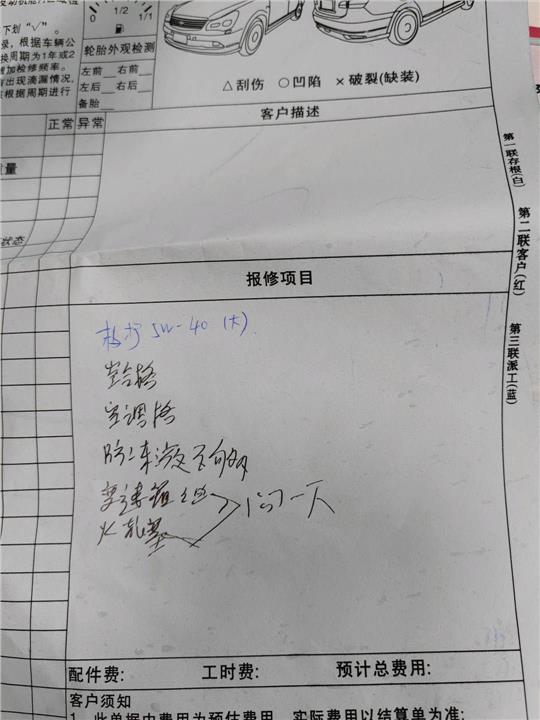 下划“√”。
录，根据车辆公
换周期为1年或2
增加检修频率。
出现滴漏情况，
根据周期进行
0 1/2 1/1
轮胎外观检测
左前 右前
左后 右后
备胎
△刮伤 ○凹陷 ×破裂(缺装)
正常 异常
客户描述
量
状态
第一联存根(白)
第二联客户(红)
第三联派工(蓝)
报修项目
5W-40 (大)
空合格
空调格
刹车液不够
变速箱油
火花塞
问一下
配件费: 工时费: 预计总费用:
客户须知
1、此单据中费用为预估费用，实际费用以结算单为准;